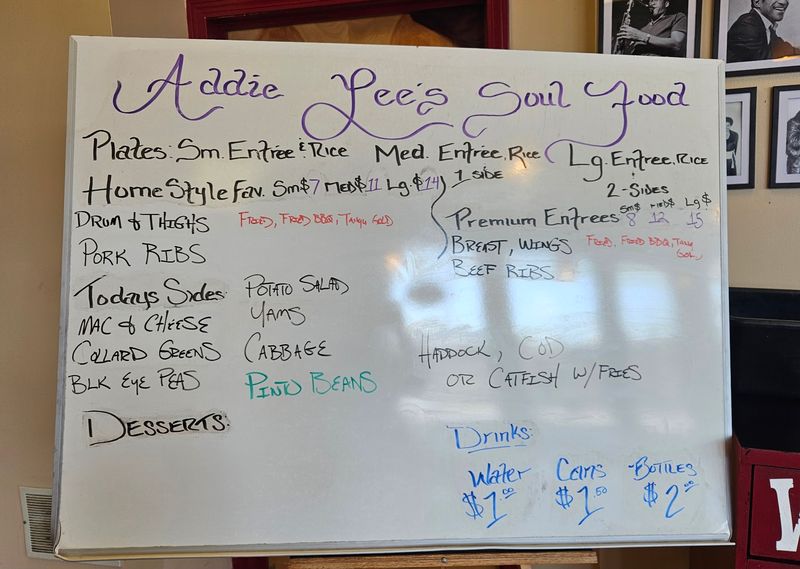 Addie Lee's Soul Food
Plates: Sm. Entree & Rice Med. Entree, Rice 1 SIDE Lg. Entree, Rice + 2-Sides
Home Style Fav. Sm $7 Med $11 Lg. $14
DRUM & THIGHS FRIED, FRIED BBQ, TANGY GOLD
PORK RIBS
Premium Entrees Sm$ 8 Med$ 12 Lg $ 15
BREAST, WINGS FRIED, FRIED BBQ, TANG GOL
BEEF RIBS
Todays Sides: POTATO SALAD
MAC & CHEESE YAMS
COLLARD GREENS CABBAGE
BLK EYE PEAS PINTO BEANS
HADDOCK, COD
OR CATFISH W/FRIES
DESSERTS:
Drinks:
Water Cans BOTTLES
$1.00 $1.50 $2.00
W